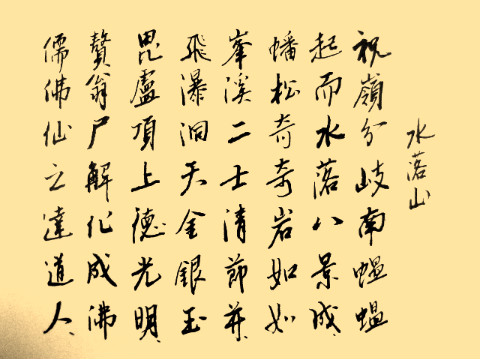 水落山
祝嶺分岐南蝹蝹
起而水落八景成
蟠松奇奇岩如如
峯溪二士清節幷
飛瀑洞天金銀玉
毘盧頂上德光明
贅翁尸解化成沸
儒佛仙之達道人